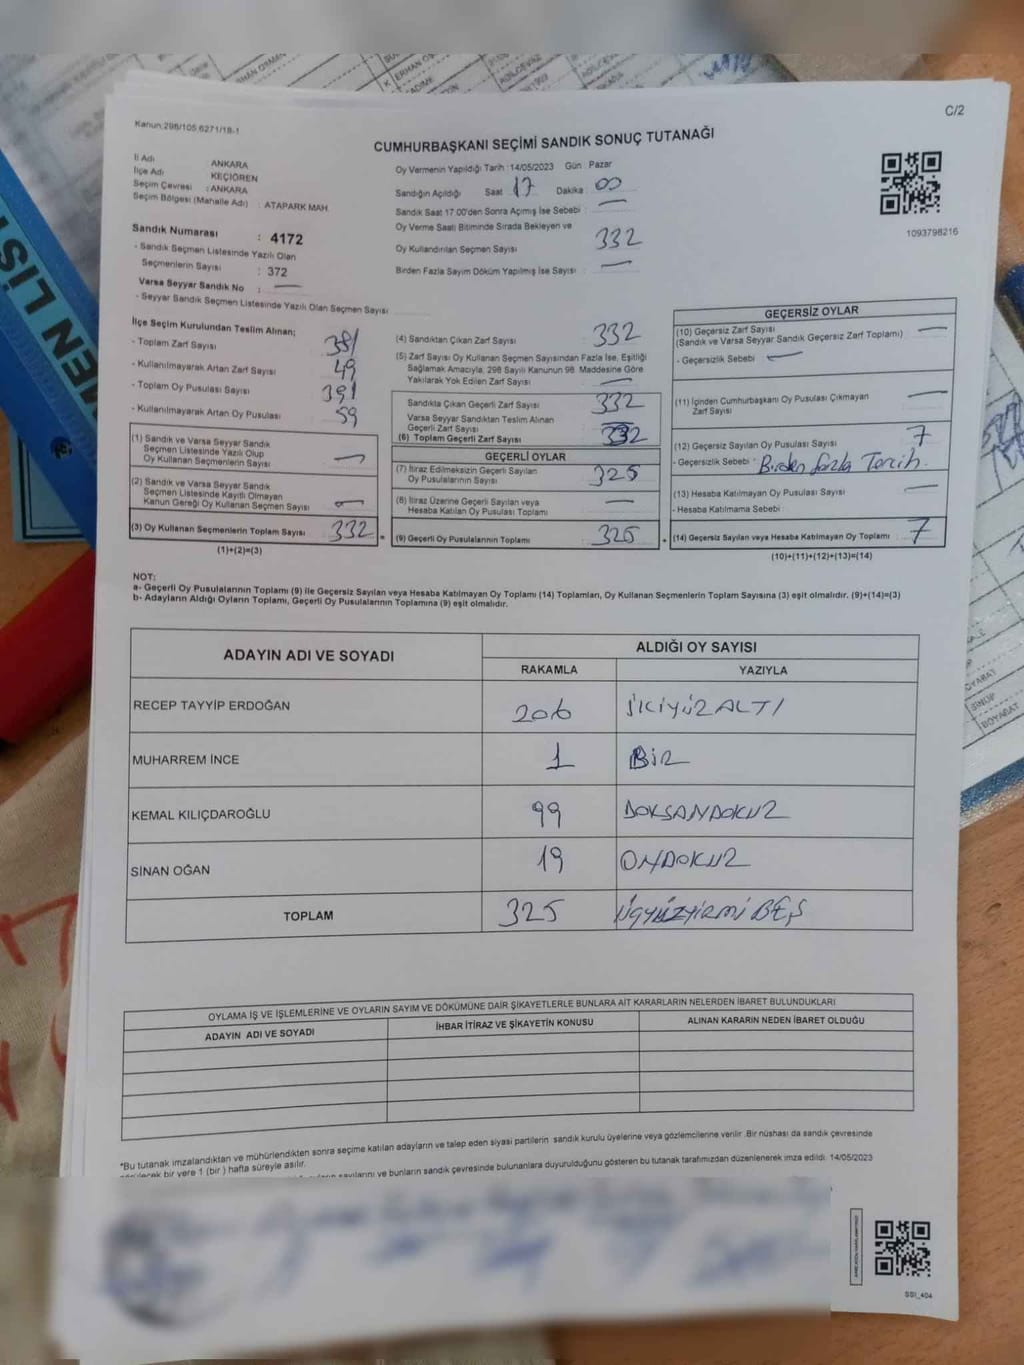 C/2
Kanun:298/105,6271/18-1
CUMHURBAŞKANI SEÇİMİ SANDIK SONUÇ TUTANAĞI
İl Adı ANKARA
İlçe Adı KEÇİÖREN
Seçim Çevresi : ANKARA
Seçim Bölgesi (Mahalle Adı) : ATAPARK MAH.
Sandık Numarası : 4172
- Sandık Seçmen Listesinde Yazılı Olan
Seçmenlerin Sayısı : 372
Varsa Seyyar Sandık No : —
- Seyyar Sandık Seçmen Listesinde Yazılı Olan Seçmen Sayısı
Oy Vermenin Yapıldığı Tarih :14/05/2023 Gün : Pazar
Sandığın Açıldığı Saat 17 Dakika : 00
Sandık Saat 17.00'den Sonra Açılmış İse Sebebi : —
Oy Verme Saati Bitiminde Sırada Bekleyen ve
Oy Kullandırılan Seçmen Sayısı 332
Birden Fazla Sayım Döküm Yapılmış İse Sayısı : —
1093798216
İlçe Seçim Kurulundan Teslim Alınan;
- Toplam Zarf Sayısı 381
- Kullanılmayarak Artan Zarf Sayısı 49
- Toplam Oy Pusulası Sayısı 391
- Kullanılmayarak Artan Oy Pusulası 59
(1) Sandık ve Varsa Seyyar Sandık
Seçmen Listesinde Yazılı Olup
Oy Kullanan Seçmenlerin Sayısı —
(2) Sandık ve Varsa Seyyar Sandık
Seçmen Listesinde Kayıtlı Olmayan
Kanun Gereği Oy Kullanan Seçmen Sayısı —
(3) Oy Kullanan Seçmenlerin Toplam Sayısı 332
(1)+(2)=(3)
(4) Sandıktan Çıkan Zarf Sayısı 332
(5) Zarf Sayısı Oy Kullanan Seçmen Sayısından Fazla İse, Eşitliği
Sağlamak Amacıyla, 298 Sayılı Kanunun 98. Maddesine Göre
Yakılarak Yok Edilen Zarf Sayısı —
Sandıkta Çıkan Geçerli Zarf Sayısı 332
Varsa Seyyar Sandıktan Teslim Alınan
Geçerli Zarf Sayısı
(6) Toplam Geçerli Zarf Sayısı 332
GEÇERLİ OYLAR
(7) İtiraz Edilmeksizin Geçerli Sayılan
Oy Pusulalarının Sayısı 325
(8) İtiraz Üzerine Geçerli Sayılan veya
Hesaba Katılan Oy Pusulası Toplamı —
(9) Geçerli Oy Pusulalarının Toplamı 325
GEÇERSİZ OYLAR
(10) Geçersiz Zarf Sayısı —
(Sandık ve Varsa Seyyar Sandık Geçersiz Zarf Toplamı)
- Geçersizlik Sebebi : —
(11) İçinden Cumhurbaşkanı Oy Pusulası Çıkmayan
Zarf Sayısı —
(12) Geçersiz Sayılan Oy Pusulası Sayısı 7
- Geçersizlik Sebebi : Birden fazla Tercih.
(13) Hesaba Katılmayan Oy Pusulası Sayısı —
- Hesaba Katılmama Sebebi
(14) Geçersiz Sayılan veya Hesaba Katılmayan Oy Toplamı 7
(10)+(11)+(12)+(13)=(14)
NOT:
a- Geçerli Oy Pusulalarının Toplamı (9) ile Geçersiz Sayılan veya Hesaba Katılmayan Oy Toplamı (14) Toplamları, Oy Kullanan Seçmenlerin Toplam Sayısına (3) eşit olmalıdır. (9)+(14)=(3)
b- Adayların Aldığı Oyların Toplamı, Geçerli Oy Pusulalarının Toplamına (9) eşit olmalıdır.
ADAYIN ADI VE SOYADI
ALDIĞI OY SAYISI
RAKAMLA YAZIYLA
RECEP TAYYİP ERDOĞAN 206 İKİYÜZ ALTI
MUHARREM İNCE 1 BİR
KEMAL KILIÇDAROĞLU 99 DOKSANDOKUZ
SİNAN OĞAN 19 ONDOKUZ
TOPLAM 325 ÜÇYÜZYİRMİ BEŞ
OYLAMA İŞ VE İŞLEMLERİNE VE OYLARIN SAYIM VE DÖKÜMÜNE DAİR ŞİKAYETLERLE BUNLARA AİT KARARLARIN NELERDEN İBARET BULUNDUKLARI
ADAYIN ADI VE SOYADI İHBAR İTİRAZ VE ŞİKAYETİN KONUSU ALINAN KARARIN NEDEN İBARET OLDUĞU
*Bu tutanak imzalandıktan ve mühürlendikten sonra seçime katılan adayların ve talep eden siyasi partilerin sandık kurulu üyelerine veya gözlemcilerine verilir .Bir nüshası da sandık çevresinde
bir yere 1 (bir ) hafta süreyle asılır.
sayılarını ve bunların sandık çevresinde bulunanlara duyurulduğunu gösteren bu tutanak tarafımızdan düzenlenerek imza edildi. 14/05/2023
SSI_404